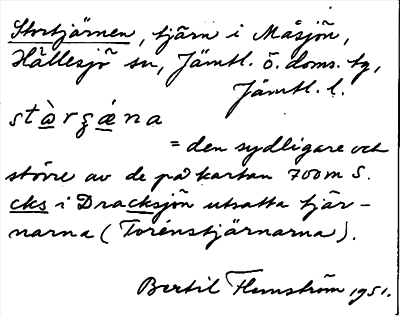 Stortjärnen, tjärn i Måsjön,
Hällesjö sn, Jämtl. ö. doms. tg,
Jämtl. l.
stàrʒǽna
= den sydligare och
större av de på kartan 700 m S.
cks i Dracksjön utsatta tjär-
narna (Torénstjärnarna).
Bertil Flemström 1951.